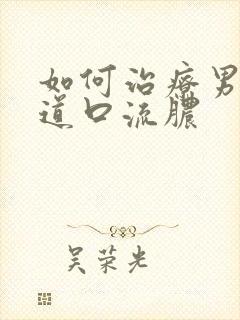 如何治疗男
道口流脓
吴荣光